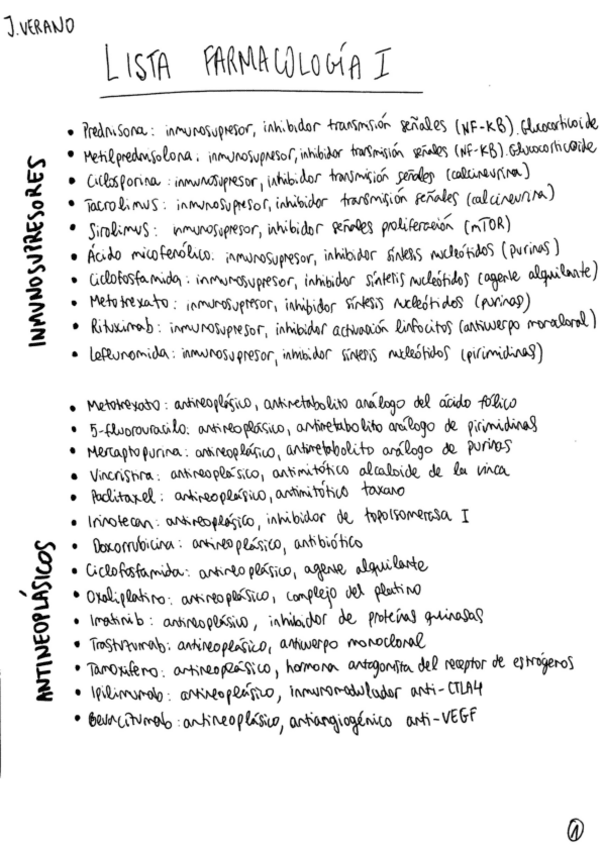 J. VERANO
LISTA FARMACOLOGÍA I
INMUNOSUPRESORES
• Prednisona: inmunosupresor, inhibidor transmisión señales (NF-KB). Glucocorticoide
• Metilprednisolona: inmunosupresor, inhibidor transmisión señales (NF-KB). Glucocorticoide
• Ciclosporina: inmunosupresor, inhibidor transmisión señales (calcineurina)
• Tacrolimus: inmunosupresor, inhibidor transmisión señales (calcineurina)
• Sirolimus: inmunosupresor, inhibidor señales proliferación (mTOR)
• Ácido micofenólico: inmunosupresor, inhibidor síntesis nucleótidos (purinas)
• Ciclofosfamida: inmunosupresor, inhibidor síntesis nucleótidos (agente alquilante)
• Metotrexato: inmunosupresor, inhibidor síntesis nucleótidos (purinas)
• Rituximab: inmunosupresor, inhibidor activación linfocitos (anticuerpo monoclonal)
• Leflunomida: inmunosupresor, inhibidor síntesis nucleótidos (pirimidinas)
ANTINEOPLÁSICOS
• Metotrexato: antineoplásico, antimetabolito análogo del ácido fólico
• 5-fluorouracilo: antineoplásico, antimetabolito análogo de pirimidinas
• Mercaptopurina: antineoplásico, antimetabolito análogo de purinas
• Vincristina: antineoplásico, antimitótico alcaloide de la vinca
• Paclitaxel: antineoplásico, antimitótico taxano
• Irinotecan: antineoplásico, inhibidor de topoisomerasa I
• Doxorrubicina: antineoplásico, antibiótico
• Ciclofosfamida: antineoplásico, agente alquilante
• Oxaliplatino: antineoplásico, complejo del platino
• Imatinib: antineoplásico, inhibidor de proteínas quinasas
• Trastuzumab: antineoplásico, anticuerpo monoclonal
• Tamoxifeno: antineoplásico, hormona antagonista del receptor de estrógenos
• Ipilimumab: antineoplásico, inmunomodulador anti-CTLA4
• Bevacizumab: antineoplásico, antiangiogénico anti-VEGF
1